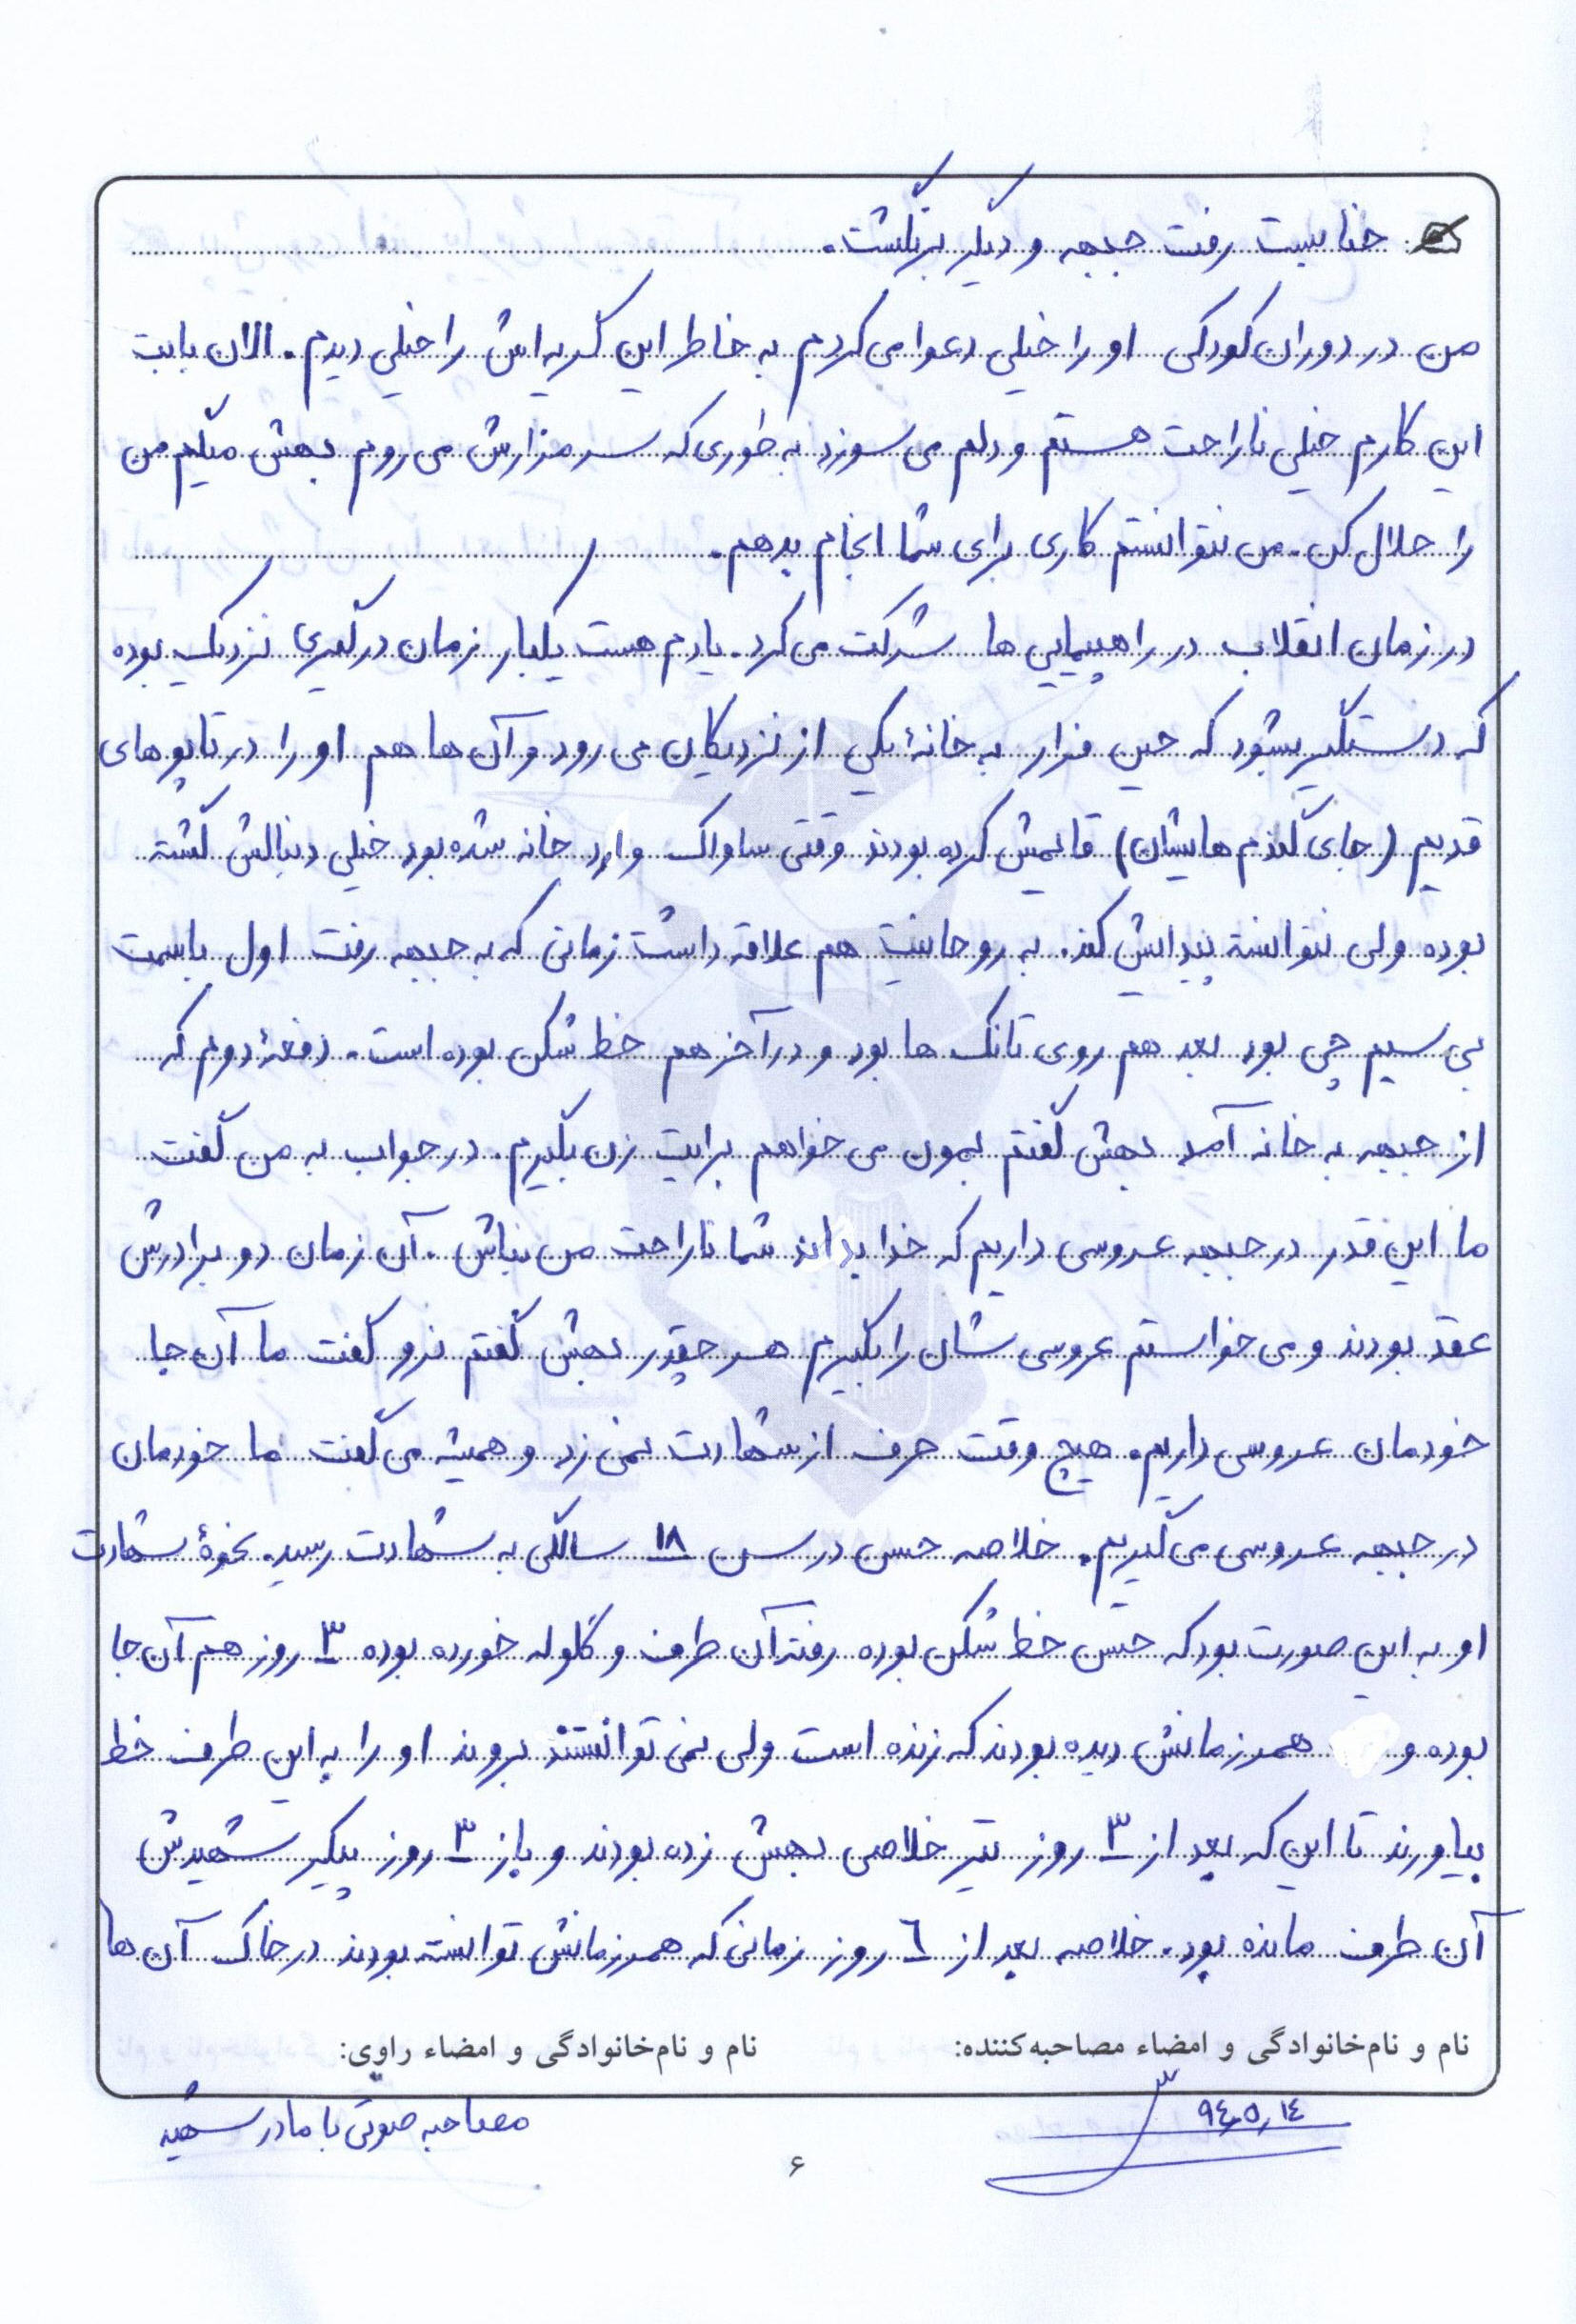 حنا بست رفت جبهه و دیگر برنگشت.
من در دوران کودکی او را خیلی دعوا می کردم به خاطر این گریه اش را خیلی دیدم. الان بابت
این کارم خیلی ناراحت هستم و دلم می سوزد به طوری که سر مزارش می روم بهش میگم من
را حلال کن. من نتوانستم کاری برای شما انجام بدهم.
در زمان انقلاب در راهپیمایی ها شرکت می کرد. یادم هست یکبار زمان درگیری نزدیک بوده
که دستگیر بشود که حین فرار به خانۀ یکی از نزدیکان می رود و آن ها هم او را در تاپوهای
قدیم (جای گندم هایشان) قایمش کرده بودند وقتی ساواک وارد خانه شده بود خیلی دنبالش گشته
بوده ولی نتوانسته پیدایش کند. به روحانیت هم علاقه داشت زمانی که به جبهه رفت اول باسمت
بی سیم چی بود بعد هم روی تانک ها بود و در آخر هم خط شکن بوده است. دفعۀ دوم که
از جبهه به خانه آمد بهش گفتم بمون می خواهم برایت زن بگیرم. در جواب به من گفت
ما این قدر در جبهه عروسی داریم که خدا بداند شما ناراحت من نباش. آن زمان دو برادرش
عقد بودند و می خواستم عروسی شان را بگیرم هر چقدر بهش گفتم نرو گفت ما آن جا
خودمان عروسی داریم. هیچ وقت حرف از شهادت نمی زد و همیشه می گفت ما خودمان
در جبهه عروسی می گیریم. خلاصه حسن در سن ۱۸ سالگی به شهادت رسید. نحوۀ شهادت
او به این صورت بود که حسن خط شکن بوده رفته آن طرف و گلوله خورده بوده ۳ روز هم آن جا
بوده و همرزمانش دیده بودند که زنده است ولی نمی توانستند بروند او را به این طرف خط
بیاورند تا این که بعد از ۳ روز تیر خلاصی بهش زده بودند و باز ۳ روز پیکر شهیدش
آن طرف مانده بود. خلاصه بعد از ٦ روز زمانی که همرزمانش توانسته بودند در خاک آن ها
نام و نام‌خانوادگی و امضاء مصاحبه‌کننده: نام و نام‌خانوادگی و امضاء راوی:
٩٤,٥,١٤ مصاحبه صوتی با مادر شهید
۶